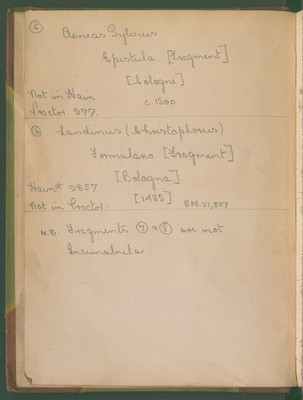 ⑤ Aeneas Sylvius
Epistula [Fragment]
[Cologne]
Not in Hain c. 1500
Proctor. 977.
⑥ Landinus (Christophorus)
Formulario [Fragment]
[Bologna]
Hain* 9857
[1485]
Not in Proctor. BM. VI, 807
N.B. Fragments ⑦ & ⑧ are not
Incunabula.